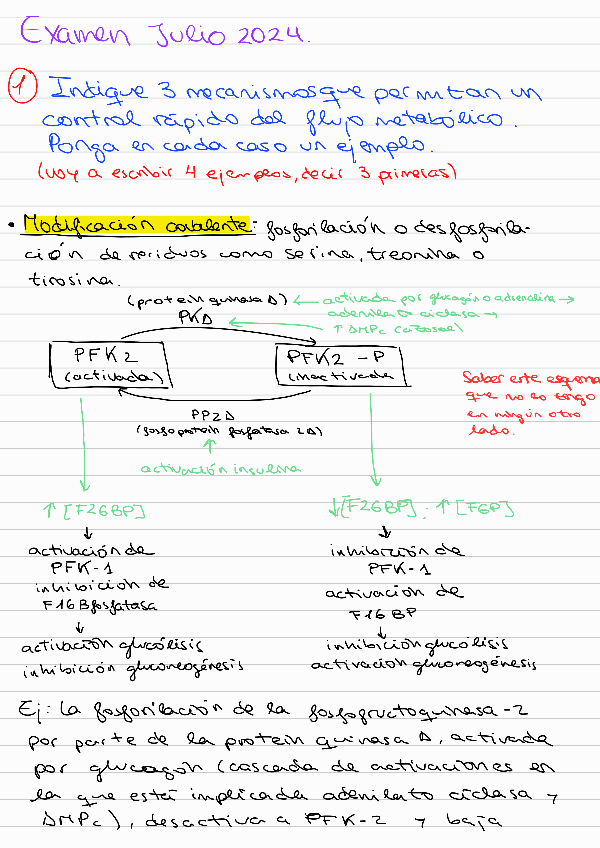 Examen Julio 2024.
1 Indique 3 mecanismos que permitan un
control rápido del flujo metabólico.
Ponga en cada caso un ejemplo.
(voy a escribir 4 ejemplos, decir 3 primeros)
• Modificación covalente: fosforilación o desfosforila-
ción de residuos como serina, treonina o
tirosina.
(protein quinasa A) ← activada por glucagón o adrenalina →
adenilato ciclasa →
↑ AMPc (cascada)
PKA
PFK2
(activada)
PFK2 - P
inactivada
PP2A
(fosfoprotein fosfatasa 2A)
activación insulina
Saber este esquema
que no lo tengo
en ningún otro
lado.
↑ [F26BP]
↓
activación de
PFK-1
inhibición de
F16Bfosfatasa
↓
activación glucólisis
inhibición gluconeogénesis
↓[F26BP] · ↑ [F6P]
↓
inhibición de
PFK-1
activación de
F16 BP
↓
inhibición glucólisis
activación gluconeogénesis
Ej: La fosforilación de la fosfofructoquinasa-2
por parte de la protein quinasa A, activada
por glucagón (cascada de activaciones en
la que está implicada adenilato ciclasa y
AMPc), desactiva a PFK-2 y baja